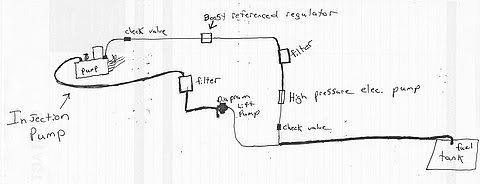 Boost referenced regulator
check valve
filter
pump
filter
High pressure elec. pump
Diapram
Lift
Pump
Injection
Pump
check valve
fuel
tank